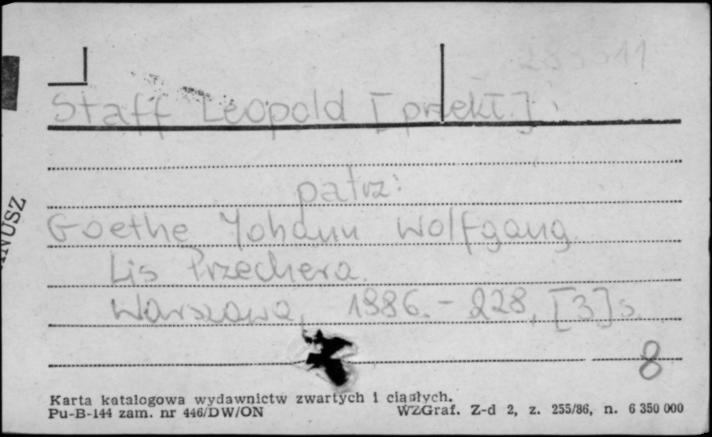 Staff Leopold [przekł.]
patrz:
Goethe Johann Wolfgang
Lis Przechera.
Warszawa, 1986. - 228, [3] s.
8
Karta katalogowa wydawnictw zwartych i ciągłych.
Pu-B-144 zam. nr 446/DW/ON WZGraf. Z-d 2, z. 255/86, n. 6 350 000